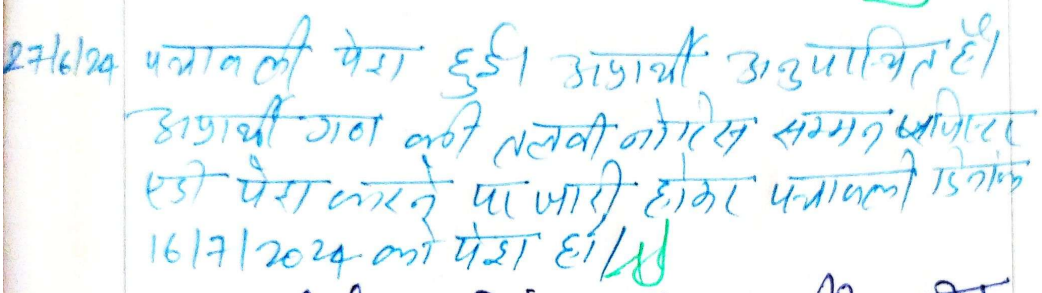 27/6/24 पत्रावली पेश हुई। अप्रार्थी अनुपस्थित है।
अप्रार्थी गण की तलबी नोटिस सम्मन रजिस्टर
एडी पेश करने पर जारी होकर पत्रावली दिनांक
16/7/2024 को पेश हो।